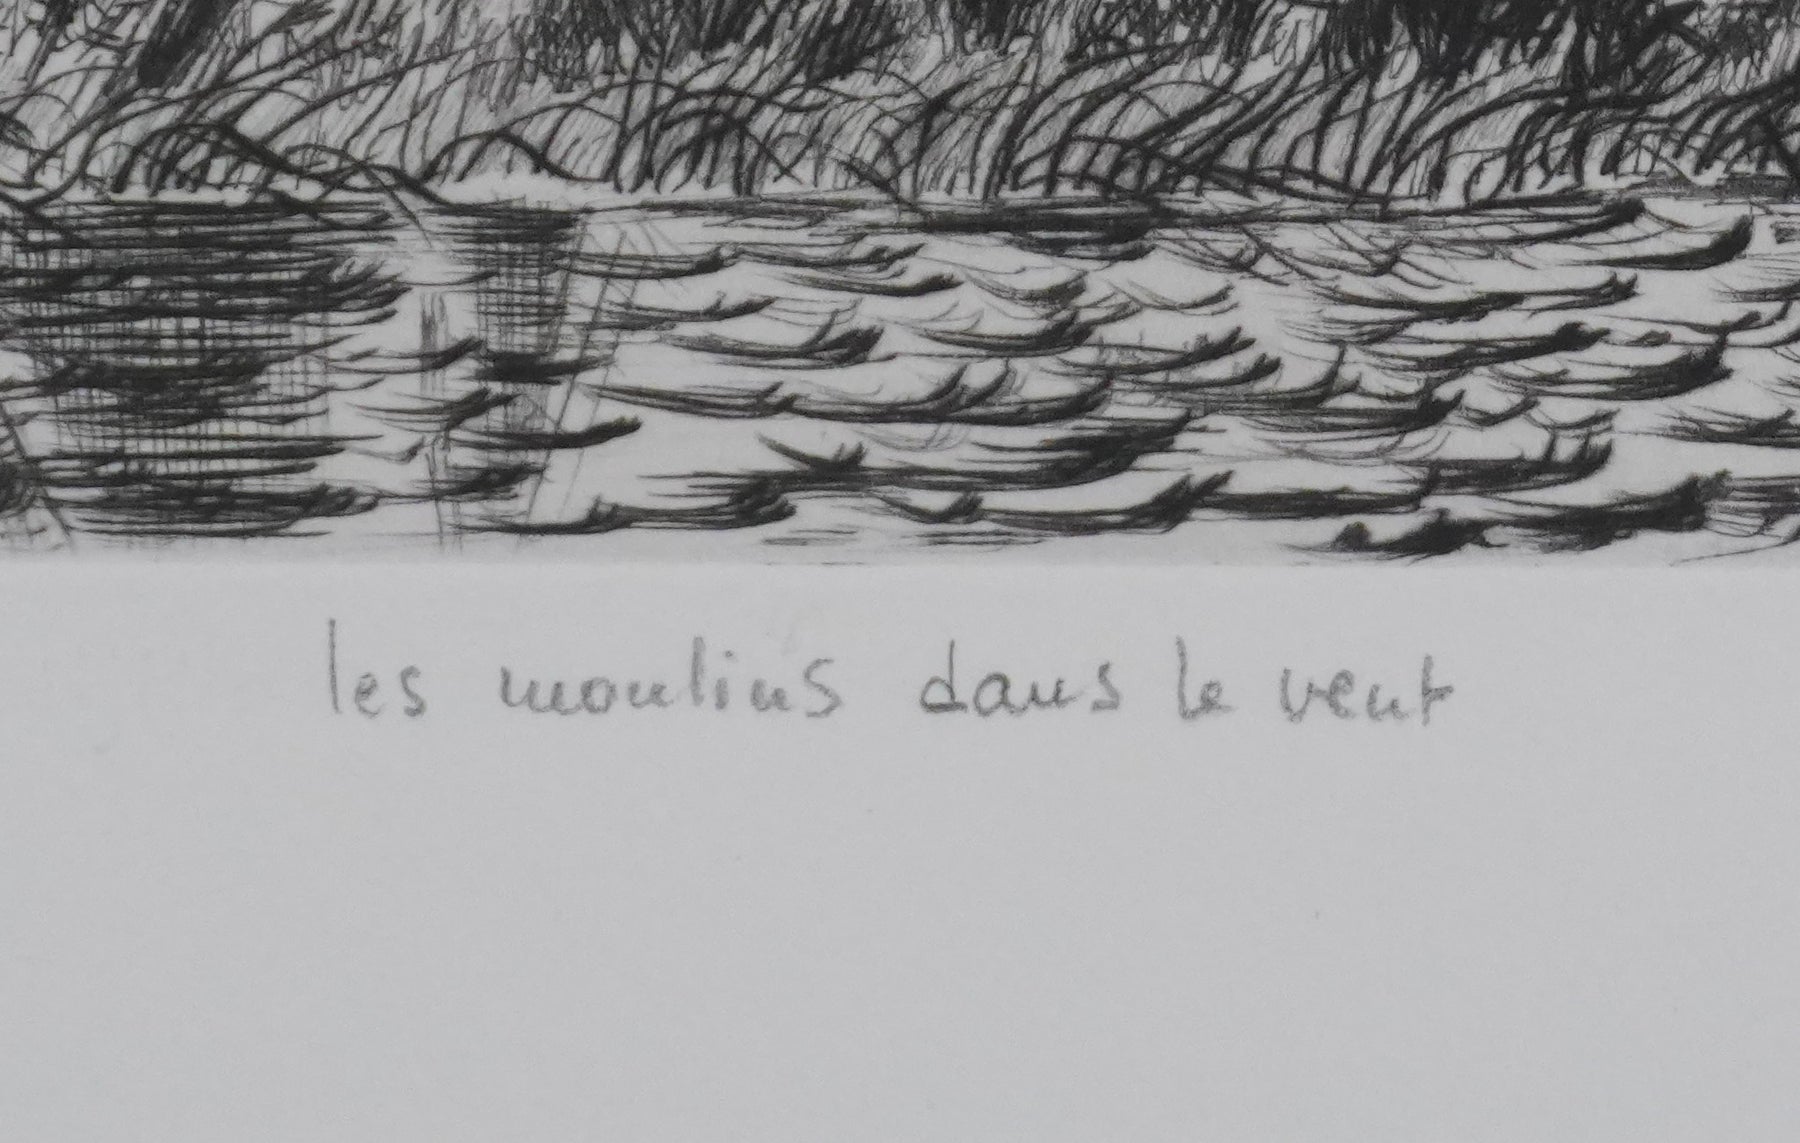 les moulins dans le vent